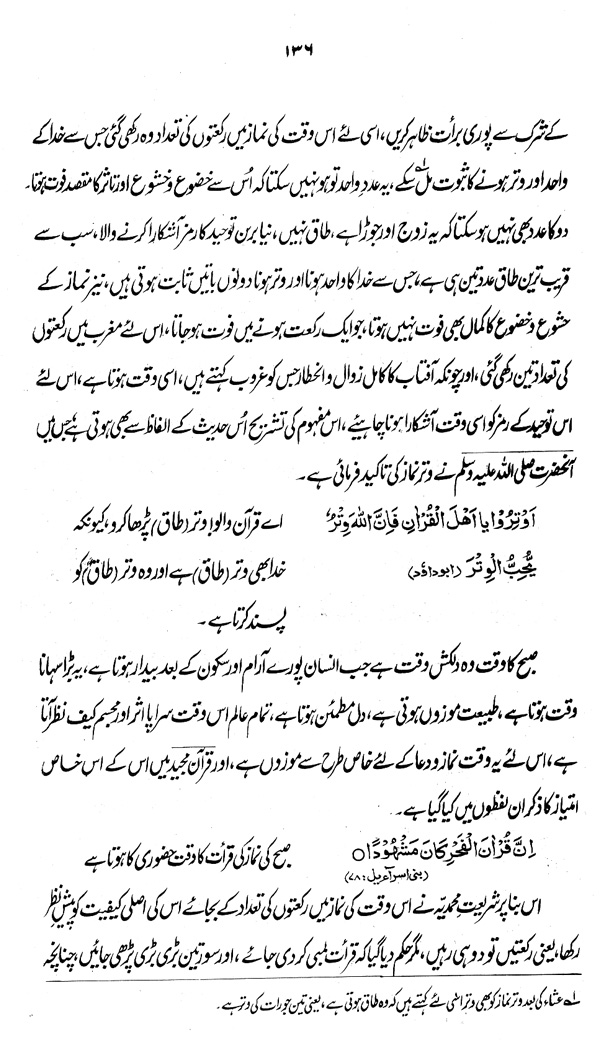 ۱۳۶
کے شرک سے پوری برأت ظاہر کریں، اسی لئے اس وقت کی نماز میں رکعتوں کی تعداد وہ رکھی گئی جس سے خدا کے
واحد اور وتر ہونے کا ثبوت مل سکے؎۱، یہ عدد واحد تو ہو نہیں سکتا کہ اُس سے خضوع و خشوع اور تاثر کا مقصد فوت ہوتا۔
دو کا عدد بھی نہیں ہو سکتا کہ یہ زوج اور جوڑا ہے، طاق نہیں، بنا بریں توحید کا رمز آشکارا کرنے والا، سب سے
قریب ترین طاق عدد تین ہی ہے، جس سے خدا کا واحد ہونا اور وتر ہونا دونوں باتیں ثابت ہوتی ہیں، نیز نماز کے
خشوع و خضوع کا کمال بھی فوت نہیں ہوتا، جو ایک رکعت ہونے میں فوت ہو جاتا، اس لئے مغرب میں رکعتوں
کی تعداد تین رکھی گئی، اور چونکہ آفتاب کا کامل زوال و انحطاط جس کو غروب کہتے ہیں، اسی وقت ہوتا ہے، اس لئے
اس توحید کے رمز کو اسی وقت آشکارا ہونا چاہیئے، اس مفہوم کی تشریح اُس حدیث کے الفاظ سے بھی ہوتی ہے، جس میں
آنحضرت صلی اللہ علیہ وسلم نے وتر نماز کی تاکید فرمائی ہے۔
اَوْتِرُوْا یا اَھْلَ الْقُرْاٰنِ فَاِنَّ اللہَ وِتْرٌ، اے قرآن والو! وتر (طاق) پڑھا کرو، کیونکہ
یُّحِبُّ الْوِتْرَ (ابوداؤد) خدا بھی وتر (طاق) ہے اور وہ وتر (طاق) کو
پسند کرتا ہے۔
صبح کا وقت وہ دلکش وقت ہے جب انسان پورے آرام اور سکون کے بعد بیدار ہوتا ہے، یہ بڑا سہانا
وقت ہوتا ہے، طبیعت موزوں ہوتی ہے، دل مطمئن ہوتا ہے، تمام عالم اس وقت سراپا اثر اور مجسم کیف نظر آتا
ہے، اس لئے یہ وقت نماز و دعا کے لئے خاص طرح سے موزوں ہے، اور قرآن مجید میں اس کے اس خاص
امتیاز کا ذکر ان لفظوں میں کیا گیا ہے۔
اِنَّ قُرْاٰنَ الْفَجْرِ کَانَ مَشْھُوْدًا ○ صبح کی نماز کی قرأت کا وقت حضوری کا ہوتا ہے
(بنی اسرآءیل: ۷۸)
اس بنا پر شریعت محمدیہ نے اس وقت کی نماز میں رکعتوں کی تعداد کے بجائے اس کی اصلی کیفیت کو پیش نظر
رکھا، یعنی رکعتیں تو دو ہی رہیں، مگر حکم دیا گیا کہ قرأت لمبی کر دی جائے، اور سورتیں بڑی بڑی پڑھی جائیں، چنانچہ
؎۱ عشاء کی بعد وتر نماز کو بھی وتر اسی لئے کہتے ہیں کہ وہ طاق ہوتی ہے، یعنی تین جو رات کی وتر ہے۔